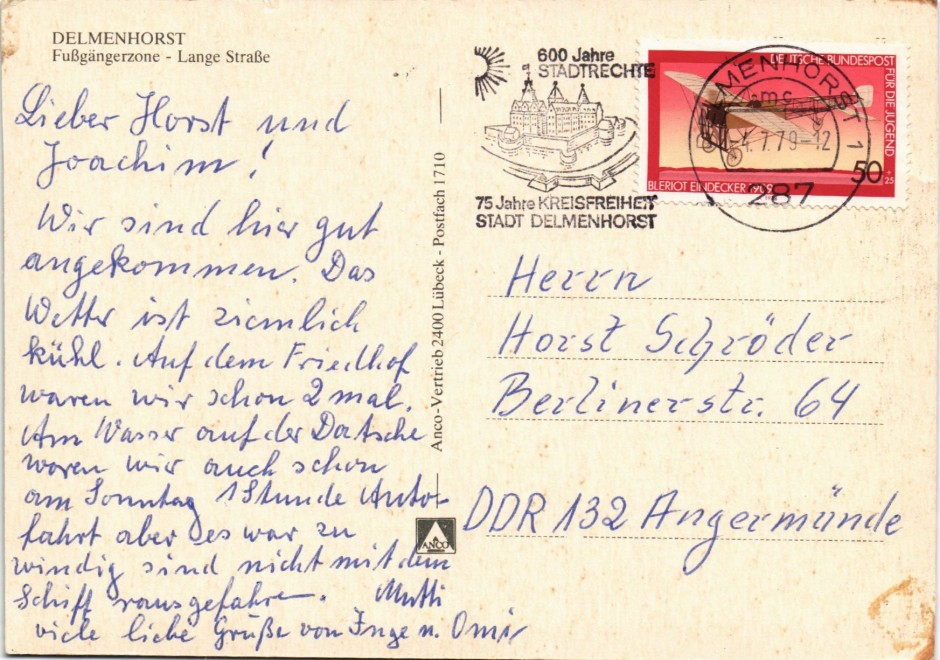 DELMENHORST
Fußgängerzone - Lange Straße
Lieber Horst und
Joachim!
Wir sind hier gut
angekommen. Das
Wetter ist ziemlich
kühl. Auf dem Friedhof
waren wir schon 2 mal.
Am Wasser auf der Datsche
waren wir auch schon
am Sonntag 1 Stunde Auto-
fahrt aber es war zu
windig sind nicht mit dem
Schiff rausgefahren. Mutti
viele liebe Grüße von Inge u.
Anco-Vertrieb 2400 Lübeck - Postfach 1710
ANCO
600 Jahre
STADTRECHTE
75 Jahre KREISFREIHEIT
STADT DELMENHORST
DEUTSCHE BUNDESPOST
FÜR DIE JUGEND
50 + 25
BLERIOT EINDECKER 1909
DELMENHORST 1
-4.7.79-12
287
Herrn
Horst Schröder
Berlinerstr. 64
DDR 132 Angermünde